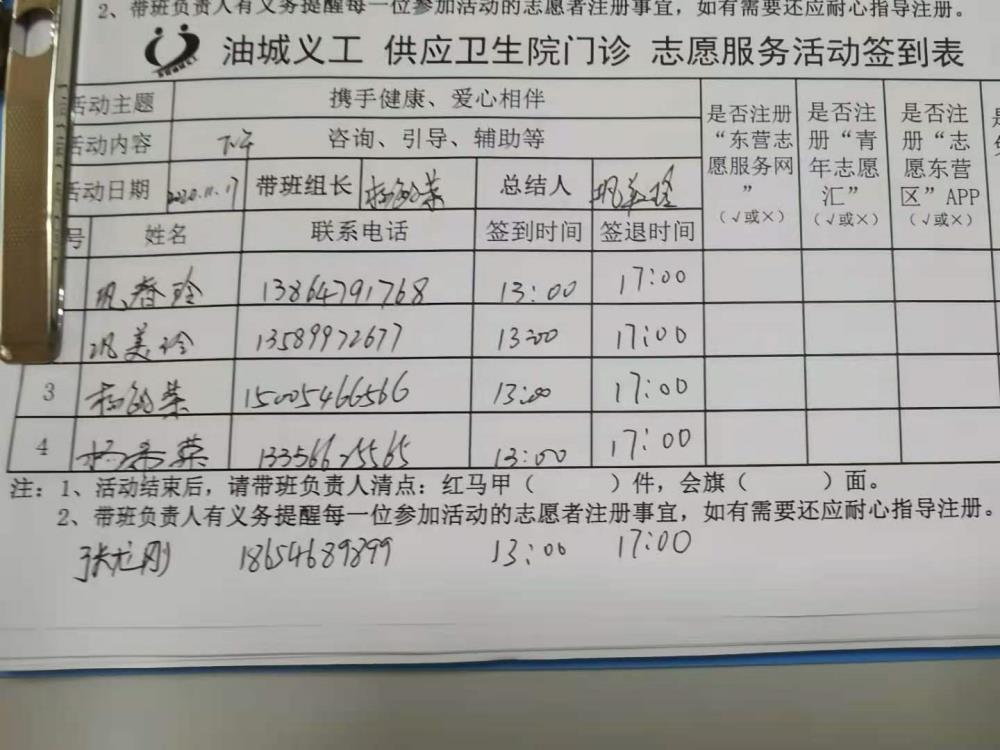 2、带班负责人有义务提醒每一位参加活动的志愿者注册事宜，如有需要还应耐心指导注册。
油城义工 供应卫生院门诊 志愿服务活动签到表
活动主题 携手健康、爱心相伴 是否注册“东营志愿服务网”（√或×） 是否注册“青年志愿汇”（√或×） 是否注册“志愿东营区”APP（√或×）
活动内容 下午 咨询、引导、辅助等
活动日期 2020.11.17 带班组长 总结人 巩美玲
号 姓名 联系电话 签到时间 签退时间
巩春玲 13864791768 13:00 17:00
巩美玲 13589972677 13:00 17:00
3 15005466566 13:00 17:00
4 杨希荣 13356625565 13:00 17:00
注：1、活动结束后，请带班负责人清点：红马甲（ ）件，会旗（ ）面。
2、带班负责人有义务提醒每一位参加活动的志愿者注册事宜，如有需要还应耐心指导注册。
张龙刚 18654689899 13:00 17:00